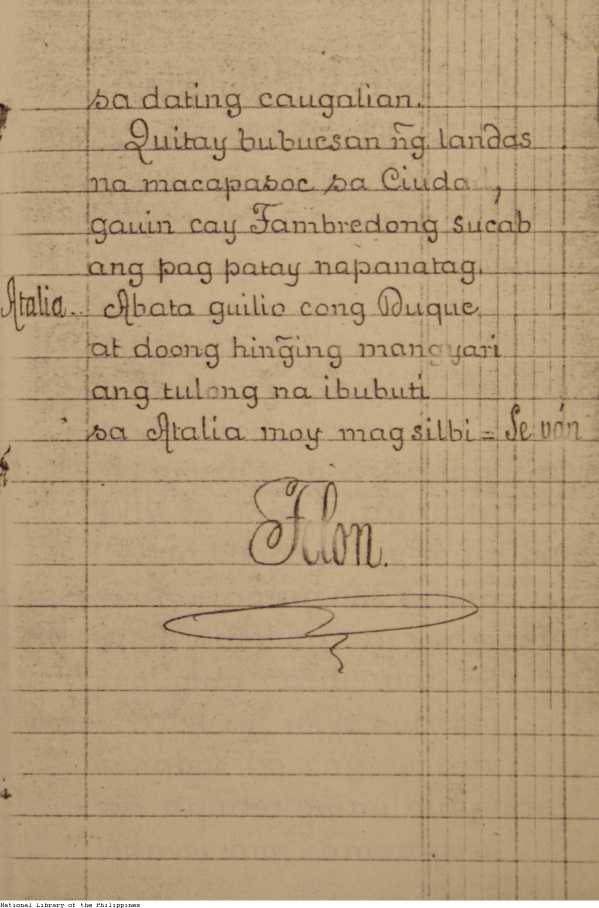 sa dating caugalian.
Quitay bubucsan ng̃ landas
na macapasoc sa Ciuda ,
gauin cay Fambredong sucab
ang pag patay napanatag.
Atalia. Abata guilio cong Duque
at doong hing̃ing mangyari
ang tulong na ibubuti
sa Atalia moy mag silbi = Se ván
Telon.
National Library of the Philippines